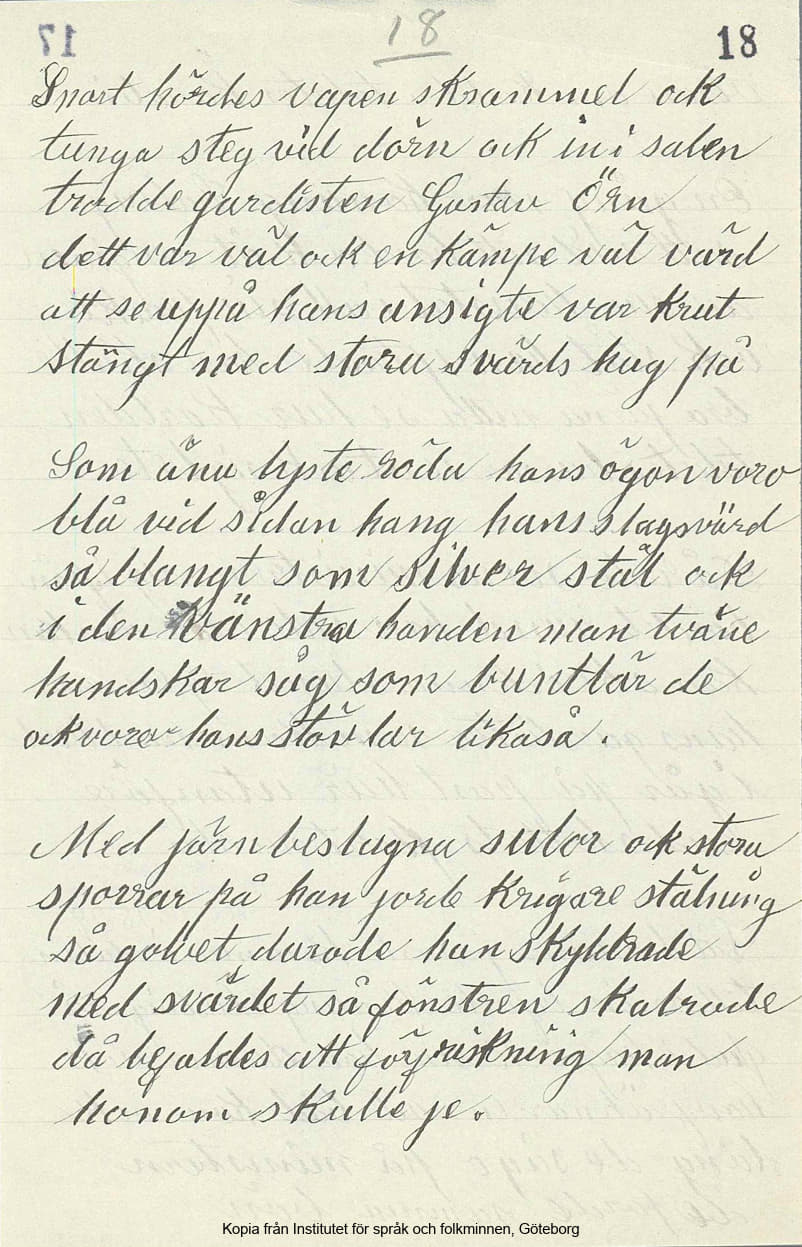 18
17
18
Snart hördes vapen skrammel ock
tunga steg vid dörn ock in i salen
trodde gardisten Gustav Örn
dett var väl ock en kämpe väl värd
att se uppå hans ansigte var krut
stängt med stora svärds hug på
Som äna lyste röda hans ögon voro
blå vid sidan hang hans slagsvärd
så blangt som silver stål ock
i den vänstra handen man tväne
handskar såg som buntlär de
ock voro hans stövlar likaså.
Med järnbeslagna sulor ock stora
sporrar på han jorde Krigare stälning
så golvet darade han skyldrade
med svärdet så fönstren skalrade
då befaldes att förfriskning man
honom skulle je.
Kopia från Institutet för språk och folkminnen, Göteborg